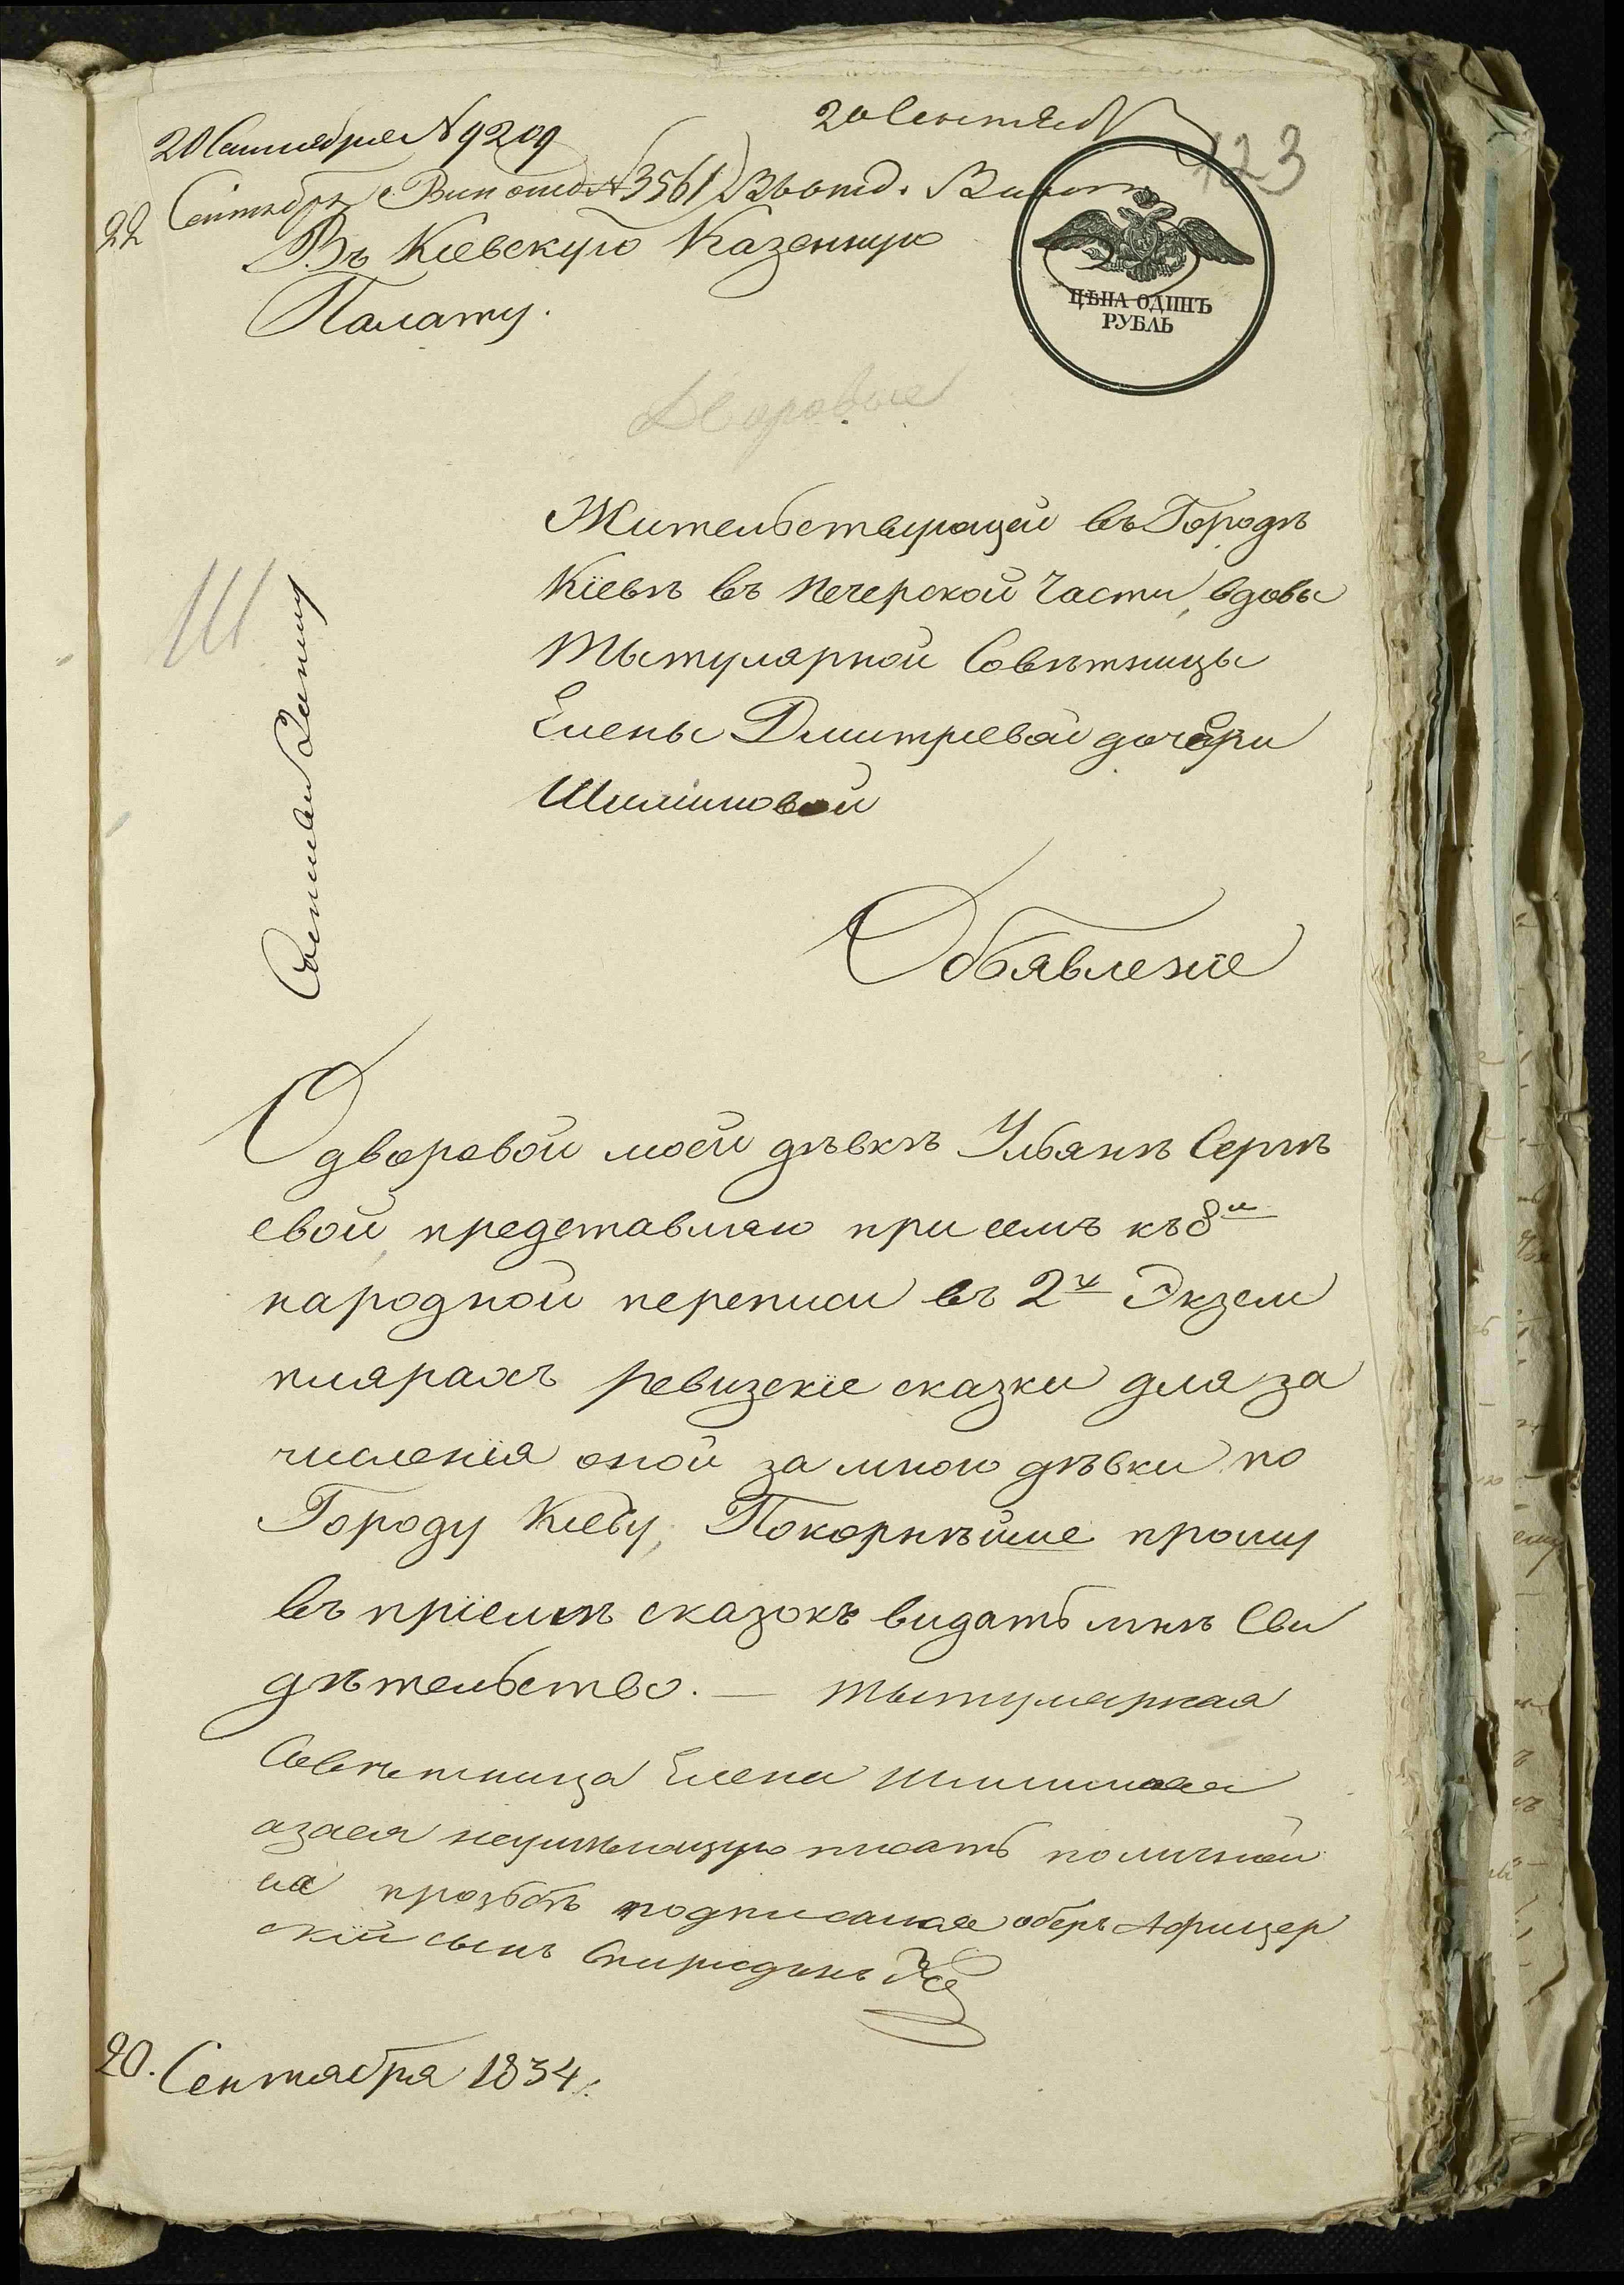 20 Сентября
123
20 Сентября № 9209
22 Сентября Вин отд № 3561
Въ Кіевскую Казенную
Палату.
ЦѢНА ОДИНЪ
РУБЛЬ
Дворовые
Жительствующей въ Городѣ
Кіевѣ въ Печерской Части, вдовы
Тытулярной Совѣтницы
Елены Дмитріевой дочери
Объявленіе
О дворовой моей дѣвкѣ Ульянѣ Сергѣ
евой представляю при семъ къ 8й
народной переписи въ 2х Экзем
плярахъ ревизскіе сказки для за
численія оной за мною дѣвки по
Городу Кіеву, Покорнѣйше прошу
въ пріемѣ сказокъ видать мнѣ Сви
дѣтельство. — Тытулярная
Совѣтница Елена
а за ея неумѣющую писать по личной
ея прозьбѣ подписался оберъ Афицер
скій сынъ Спиридонъ
20. Сентября 1834.